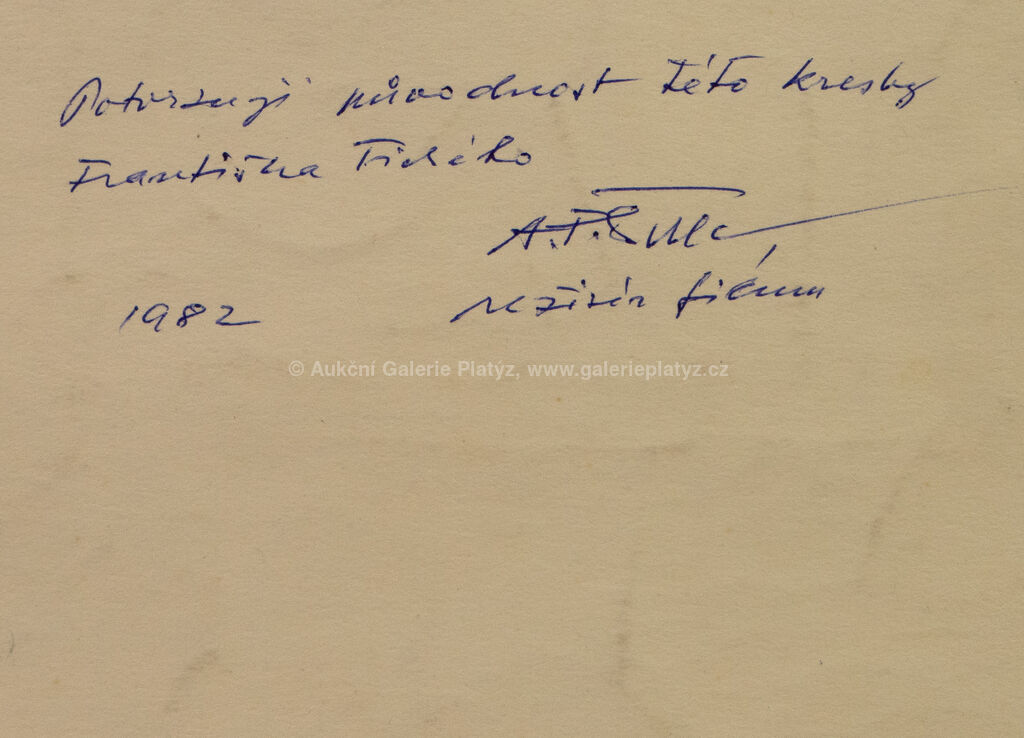 Potvrzuji původnost této kresby
Františka Tichého
A.F. Šulc,
1982 režisér filmu
© Aukční Galerie Platýz, www.galerieplatyz.cz